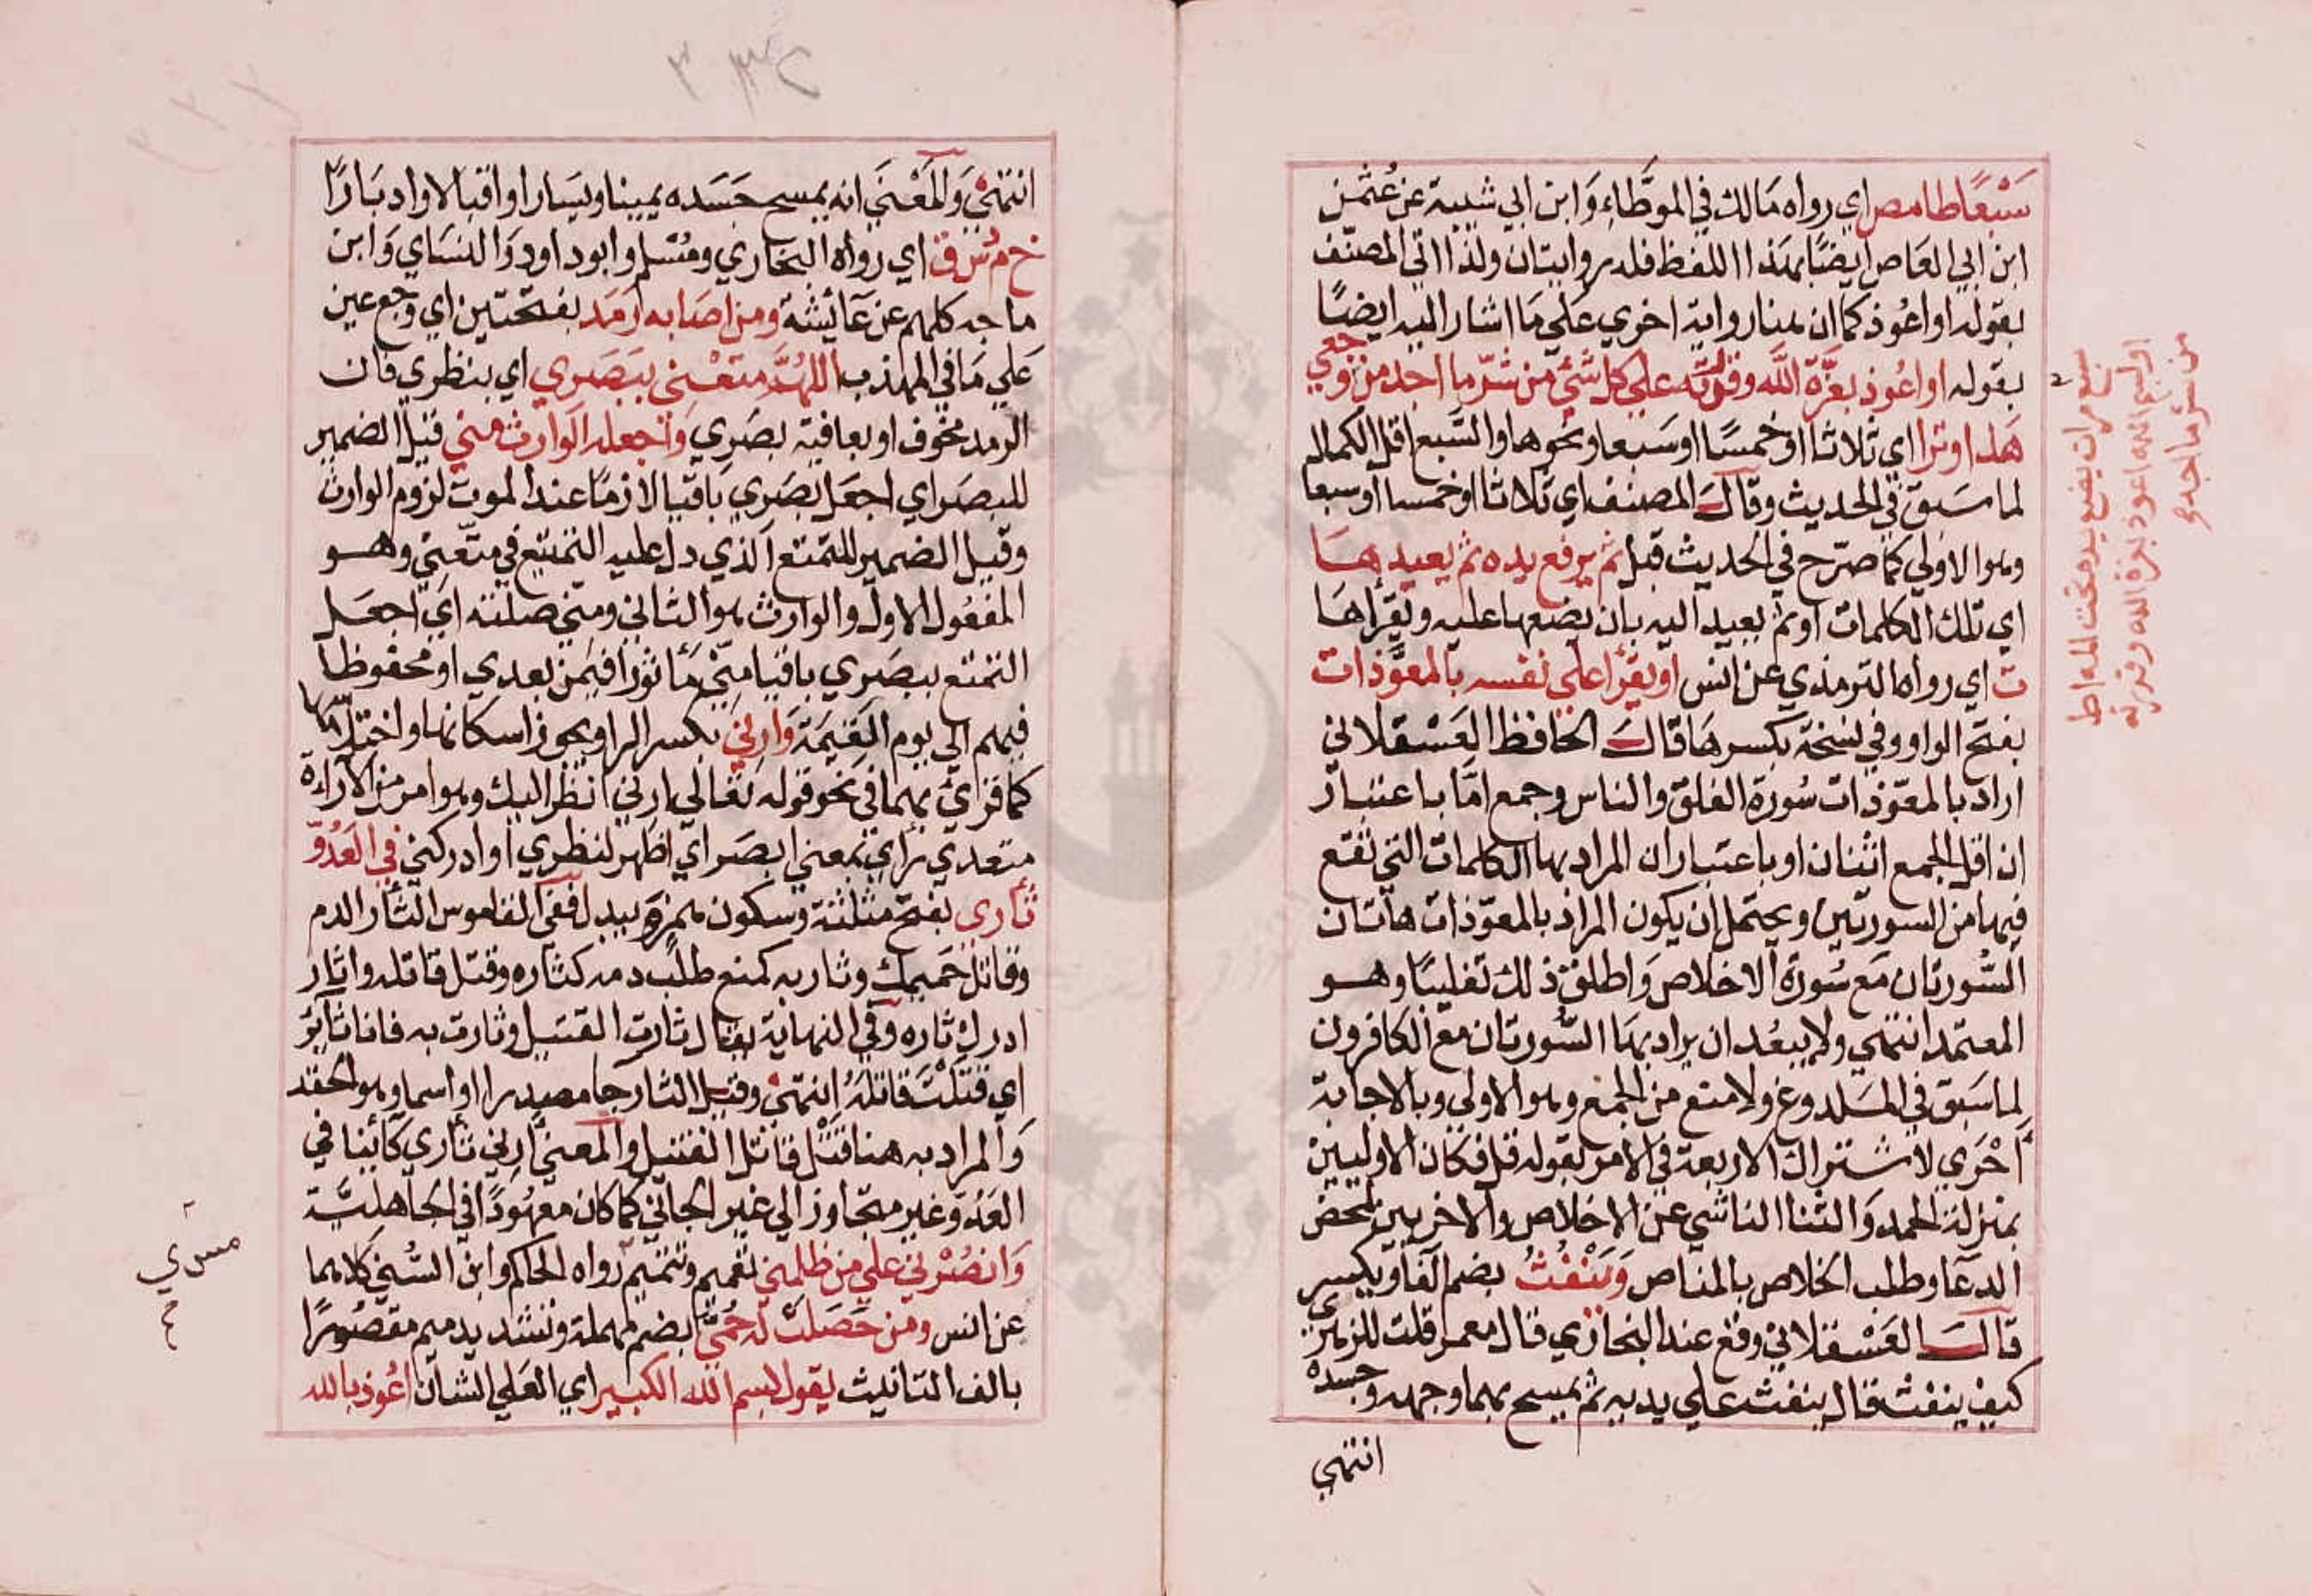 سَبْعًا طا مص اي رواه مَالك في الموطَّاء وَابن ابي شيبة عن عُثمٰن
ابن ابي العَاص ايضًا بهذا اللفظ فله روايتان ولذا اتي المصنّف
بقوله او اعُوذ كما ان هنا رواية اخري عَلي مَا اشار اليه ايضًا
بقوله او اعُوذ بعزّة اللّه وقوّته علي كل شئ من شرّ ما اجد من وجعي
هذا وترا اي ثلاثا او خمسًا او سَبعا ونحوها والسَّبع اقل الكمال
لما سَبق في الحديث وقال المصنف اي ثلاثا او خمسا او سبعا
وهو الاولي كما صرّح في الحديث قبل ثم يرفع يده ثم يعيدهَا
اي تلك الكلمات او ثم يعيد اليه بان يضعها عليه ويقرأهَا
ت اي رواه الترمذي عن انس او يقرأ علي نفسه بالمعوّذات
بفتح الواو وفي نسخة بكسرهَا قال الحافظ العَسْقلاني
اراد بالمعوّذات سُورة الفلق والناس وجمع امَّا باعتبار
ان اقل الجمع اثنان او باعتبار ان المراد بها الكلمات التي تقع
فيها من السورتين ويحتمل ان يكون المراد بالمعوّذات هاتان
السُّورتان مَع سُورة الاخلاص وَاطلق ذلك تغليبًا وهو
المعتمد انتهي ولا يبعُد ان يراد بهَا السُّورتان مع الكافرون
لما سَبق في المَلدوغ ولا منع من الجمع وهو الاولي وبالاجابة
اَحْرَي لاشتراك الاربعة في الامر بقوله قل فكان الاوليين
بمنزلة الحمد وَالثنا الناشي عن الاخلاص والاخريين لمحض
الدعَا وطلب الخلاص بالمناص وَيَنْفُثُ بضم الفا ويكسر
قال العَسْقلاني وقع عند البخاري قال معمر قلت للزهري
كيف ينفث قال ينفث علي يديه ثم يمسح بهما وجهه وجسده
انتهي
سبع مرات يضع يده تحت المه اط
او بسم الله اعوذ بعزة الله وقدرته
من شر ما اجد
انتهيْ وَالمَعْنيَ انه يمسح جَسَده يمينا ويَسارا واقبالا وادبَارًا
خ م د س ق اي رواه البخاري ومُسْلم وابو داود وَالنسَاي وَابن
ماجه كلهم عن عَائشة ومن اصَابه رَمَد بفتحتين اي وجع عين
عَلي مَا في المهذب اللهُمَّ متعْني ببَصَري اي بنظري فان
الرمد مخوف او بعافية بصَري وَاجعله الوارث مني قيل الضمير
للبصَر اي اجعَل بصَري باقيا لازمًا عند الموت لزوم الوارث
وقيل الضمير للتمتع الذي دل عليه التمتيع في متّعني وهو
المفعُول الاول والوارث هو الثاني ومني صلته اي اجعَل
التمتع ببصَري باقيا منّي مَأثورًا فيمن بعدي او محفوظا
فيهم الي يوم القيٰمَة وَارِني بكسر الرا ويجوز اسكانها واختلاسها
كما قرئ بهما في نحو قوله تعَالي ارني انظر اليك وهو امر من الاراءة
متعدي رأي بمعني ابصَر اي اظهر لنظري او ادركني في العَدُوّ
ثأري بفتح مثلثة وسكون همزة ويبدل ففي القاموس الثأر الدم
وقاتل حَميمك وثار به كمنع طلب دمه كثاره وقتل قاتله واثأر
ادرك ثاره وفي النهاية يقال ثارت القتيل وثارت به فانا ثائر
اي قتلْتَ قاتلَهُ انتهيْ وقيل الثار جا مصدرا او اسما وهو الحقد
وَالمراد به هنا قَتْل قاتل القتيل والمعنيَ ارني ثأري كائنا في
العَدُوّ غير متجاوز الي غير الجاني كما كان معهُودًا في الجاهليَّة
وَانصُرْني علي من ظلمني تعميم وتتميم رواه الحاكم وابن السُّني كلاهما
عن انس ومن حَصَلتْ له حُمَّيَ بضم مهملة وتشديد ميم مقصُورًا
بالف التانيث يقول بسم الله الكبير اي العَلي الشان اعُوذ بالله